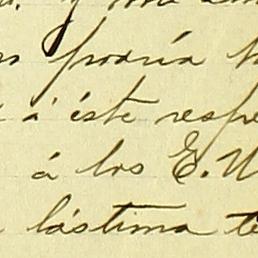 podría
á éste respe
á los E. U
lástima te